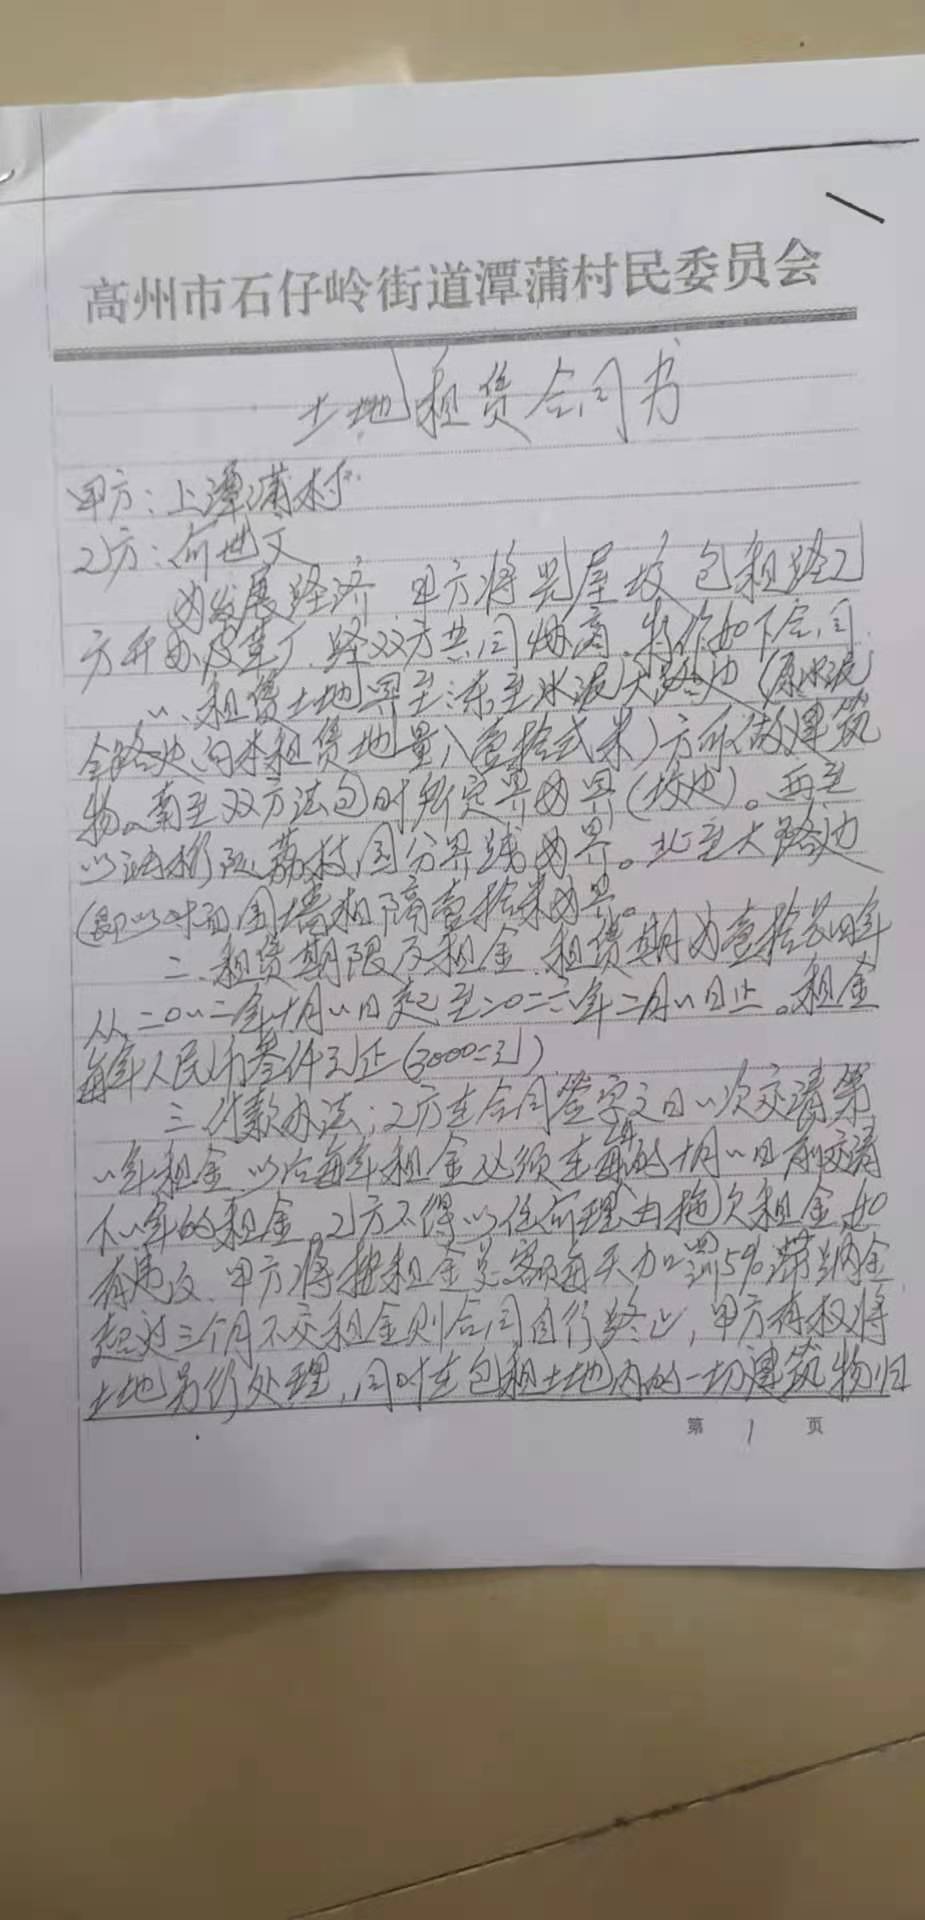 高州市石仔岭街道潭蒲村民委员会
土地租赁合同书
甲方：上潭蒲村
乙方：何世文
为发展经济 甲方将 屋坡包租给乙
方开办 经双方共同 特作如下合同
一、租赁土地界至：东至水泥大路边（原水泥
路边向本租赁地量入壹拾弍米）方可做建筑
物。南至双方 时所定界为界（坡边）。西至
以 荔枝园分界线为界。北至大路边
（即以对面围墙相隔壹拾米为界。
二、租赁期限及租金、租赁期为壹拾 年
从二〇一二年十月一日起至二〇二六年二月一日止。租金
每年人民币叁仟元正（3000元）
三、付款办法：乙方在合同签字之日一次交清第
一年租金 以后每年租金必须在每年的十月一日前交清
下一年的租金。乙方不得以任何理由拖欠租金 如
有违反、甲方将按租金总额每天加罚5%滞纳金
超过三个月不交租金则合同自行终止，甲方有权将
土地另行处理，同时在包租土地内的一切建筑物归
第 1 页